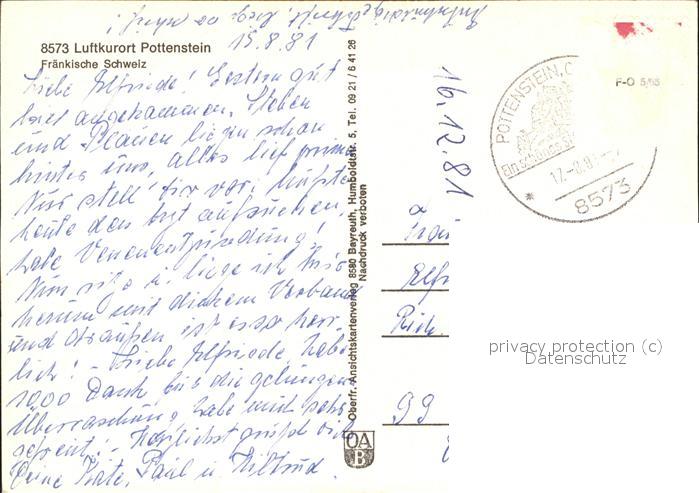 8573 Luftkurort Pottenstein
Fränkische Schweiz
15.8.81
Liebe Elfriede! Gestern gut
hier angekommen. Steben
und Plauen liegen schon
hinter uns, alles lief prima
Nur stell' Dir vor: mußte
heute den Arzt aufsuchen,
habe Venenentzündung!
Nun sitz u. liege ich
herum mit dickem Verband
und draußen ist es so herr-
lich! - Liebe Elfriede, hab
1000 Dank für die gelungene
Überraschung, habe mich sehr
gefreut! - Herzlichst grüßt Dich
Deine Käte, Paul u. Hiltrud.
Oberfr. Ansichtskartenverlag 8580 Bayreuth, Humboldtstr. 5, Tel. 09 21 / 6 41 26
Nachdruck verboten
OA
B
16.12.81
POTTENSTEIN, O
17.-8.81
8573
F-O 5/65
Elfr
99
privacy protection (c)
Datenschutz